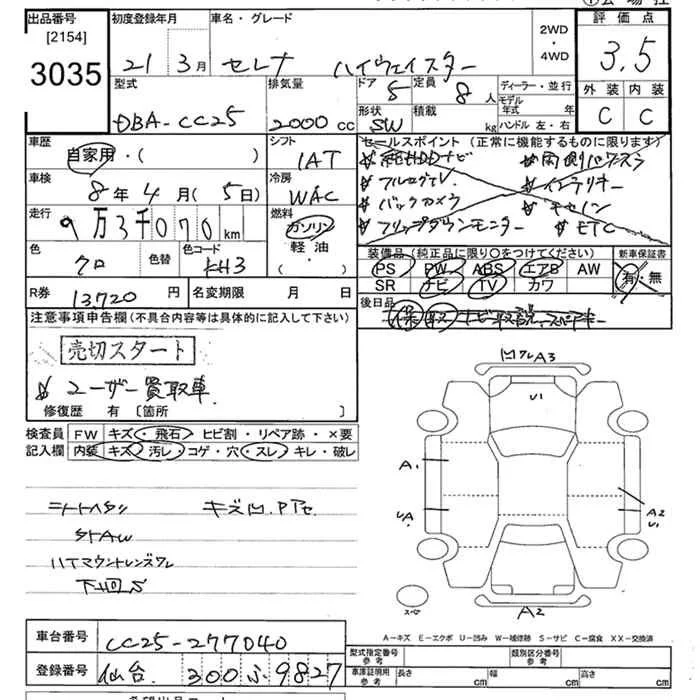 出品番号
[2154]
3035
初度登録年月
21 3月
車名・グレード
セレナ ハイウェイスター
2WD
・
4WD
評価点
3.5
外装 内装
C C
型式
DBA-CC25
排気量
2000 cc
ドア
5
定員
8 人
形状
SW
積載
kg
ディーラー・並行
モデル
年式 年
ハンドル 左・右
車歴
自家用・( )
シフト
IAT
セールスポイント (正常に機能するものに限ります)
純正HDDナビ
両側パワスラ
フルセグTV
インテリキー
バックカメラ
キセノン
フリップダウンモニター
ETC
車検
8年4月(5日)
冷房
WAC
走行
9万3千070km
燃料
ガソリン
軽・油
( ・ )
色
クロ
色替
色コード
KH3
装備品 (純正品に限り〇をつけてください)
PS PW ABS エアB AW
SR ナビ TV カワ
新車保証書
有・無
R券
13,720 円
名変期限 月 日
後日品
保 取 ナビ取説、スペアキー
注意事項申告欄 (不具合内容等は具体的に記入して下さい)
売切スタート
ユーザー買取車
修復歴 有 [箇所 ]
検査員
記入欄
FW キズ・飛石・ヒビ割・リペア跡・×要
内装 キズ・汚レ・コゲ・穴・スレ・キレ・破レ
キズ凹、
ハイマウントレンズワレ
下回S
凹ワレA3
U1
A1
UA
A2
U1
スペア
A2
A-キズ E-エクボ U-凹み W-補修跡 S-サビ C-腐食 XX-交換済
車台番号
CC25-277040
登録番号
仙台 300 ふ 9827
型式指定番号
参考
類別区分番号
参考
車庫証明用
参考
長さ cm
幅 cm
高さ cm